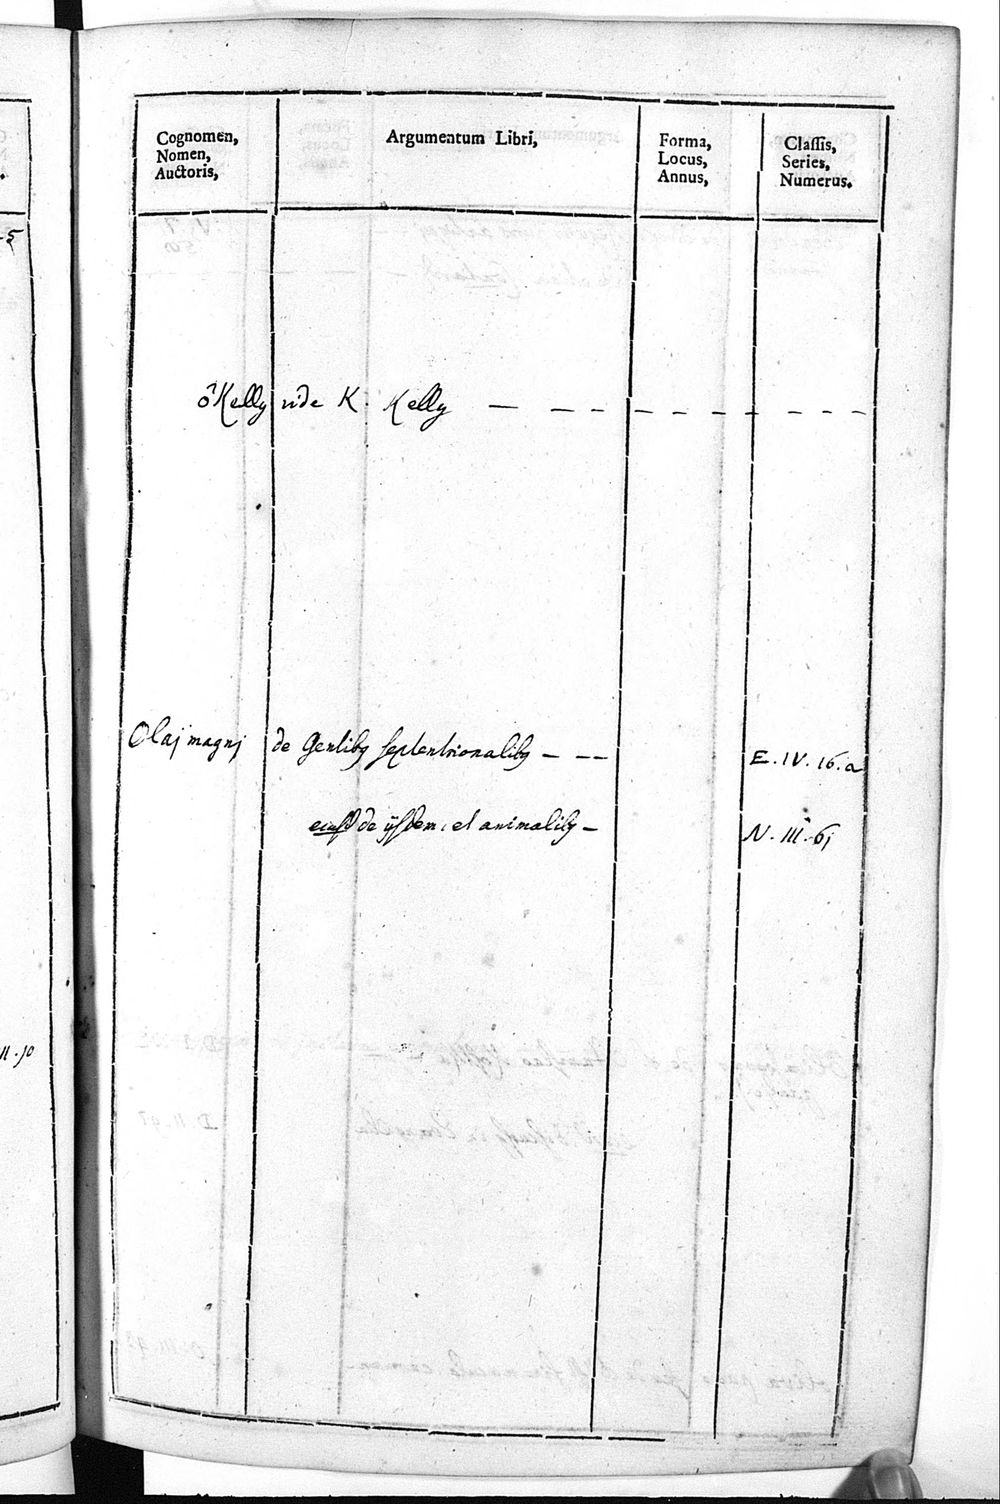 Cognomen, Nomen, Auctoris,
Argumentum Libri,
Forma, Locus, Annus,
Classis, Series, Numerus.
ô Kelly vide K. Kelly — — – – – – – – – – – – –
Olaj magnj de Gentibꝫ septentrionalibꝫ – – – E. IV. 16. a
eiusd de ijsdem, et animalibꝫ – N. III. 6j
II. 50